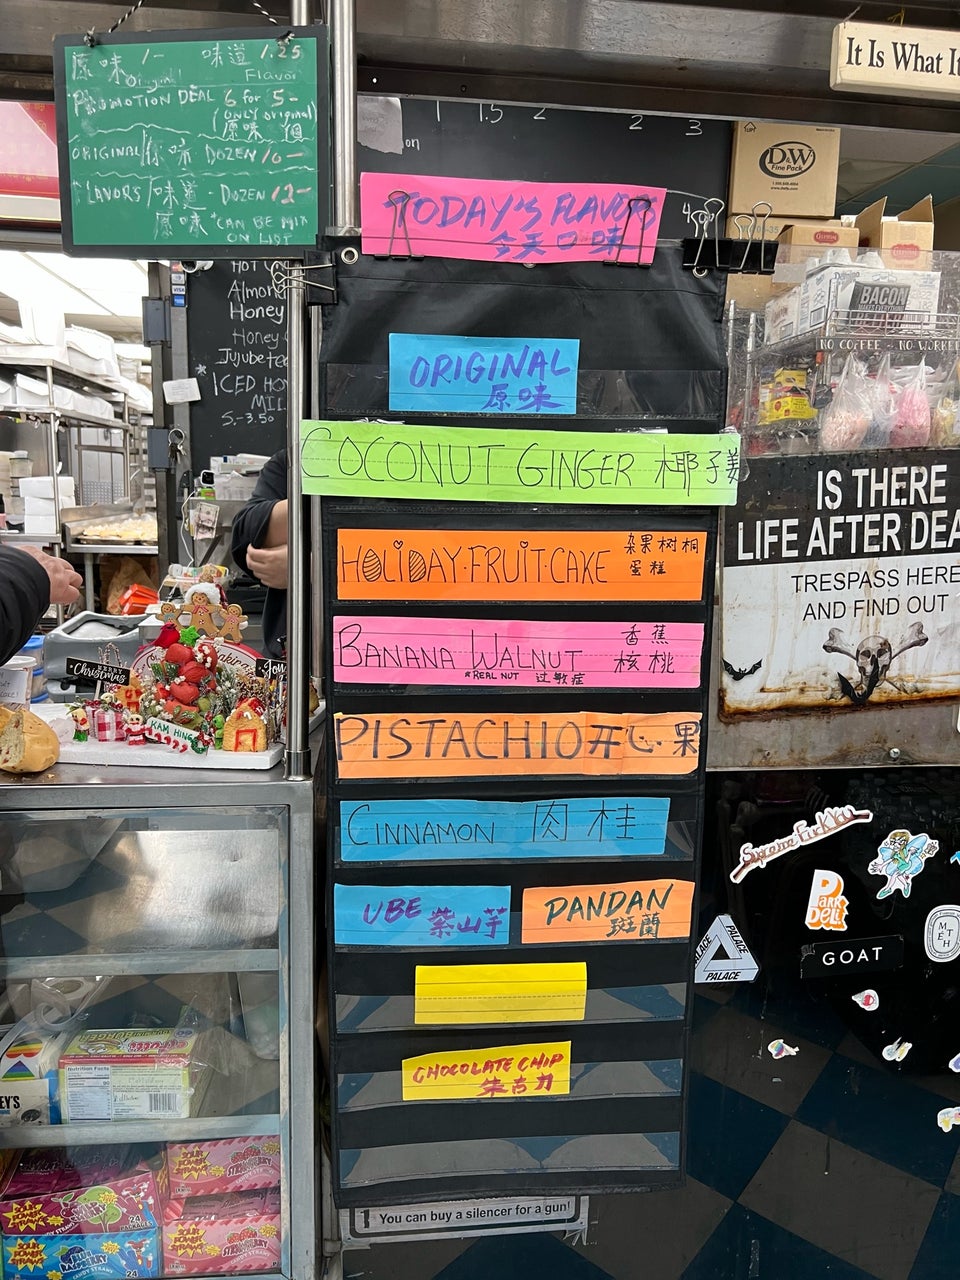 原味 1- 味道 1.25
Original Flavor
PROMOTION DEAL 6 for 5-
(ONLY original)
原味
ORIGINAL/原味 DOZEN 10-
FLAVORS/味道 - DOZEN 12-
原味 *CAN BE MIX
ON LIST
It Is What It
1 1.5 2 2 3
on
D&W
Fine Pack
TODAY'S FLAVORS
今天口味
HOT
Almond
Honey
Honey
Jujube Tea
ICED
5.-3.50
BACON
NO COFFEE - NO WORKEE
ORIGINAL
原味
COCONUT GINGER 椰子姜
HOLIDAY·FRUIT·CAKE 杂果树桐
蛋糕
BANANA WALNUT 香蕉
核桃
*REAL NUT 过敏症
PISTACHIO 开心果
CINNAMON 肉桂
UBE 紫山芋
PANDAN
斑蘭
CHOCOLATE CHIP
朱古力
IS THERE
LIFE AFTER DEA
TRESPASS HERE
AND FIND OUT
MERRY
Christmas
KAM HING
PARK
DELI
PALACE
PALACE
PALACE
GOAT
METH
Nutrition Facts
SOUR
POWER
STRAWS
24
BLUE
RASPBERRY
CANDY STRAWS
24
You can buy a silencer for a gun!